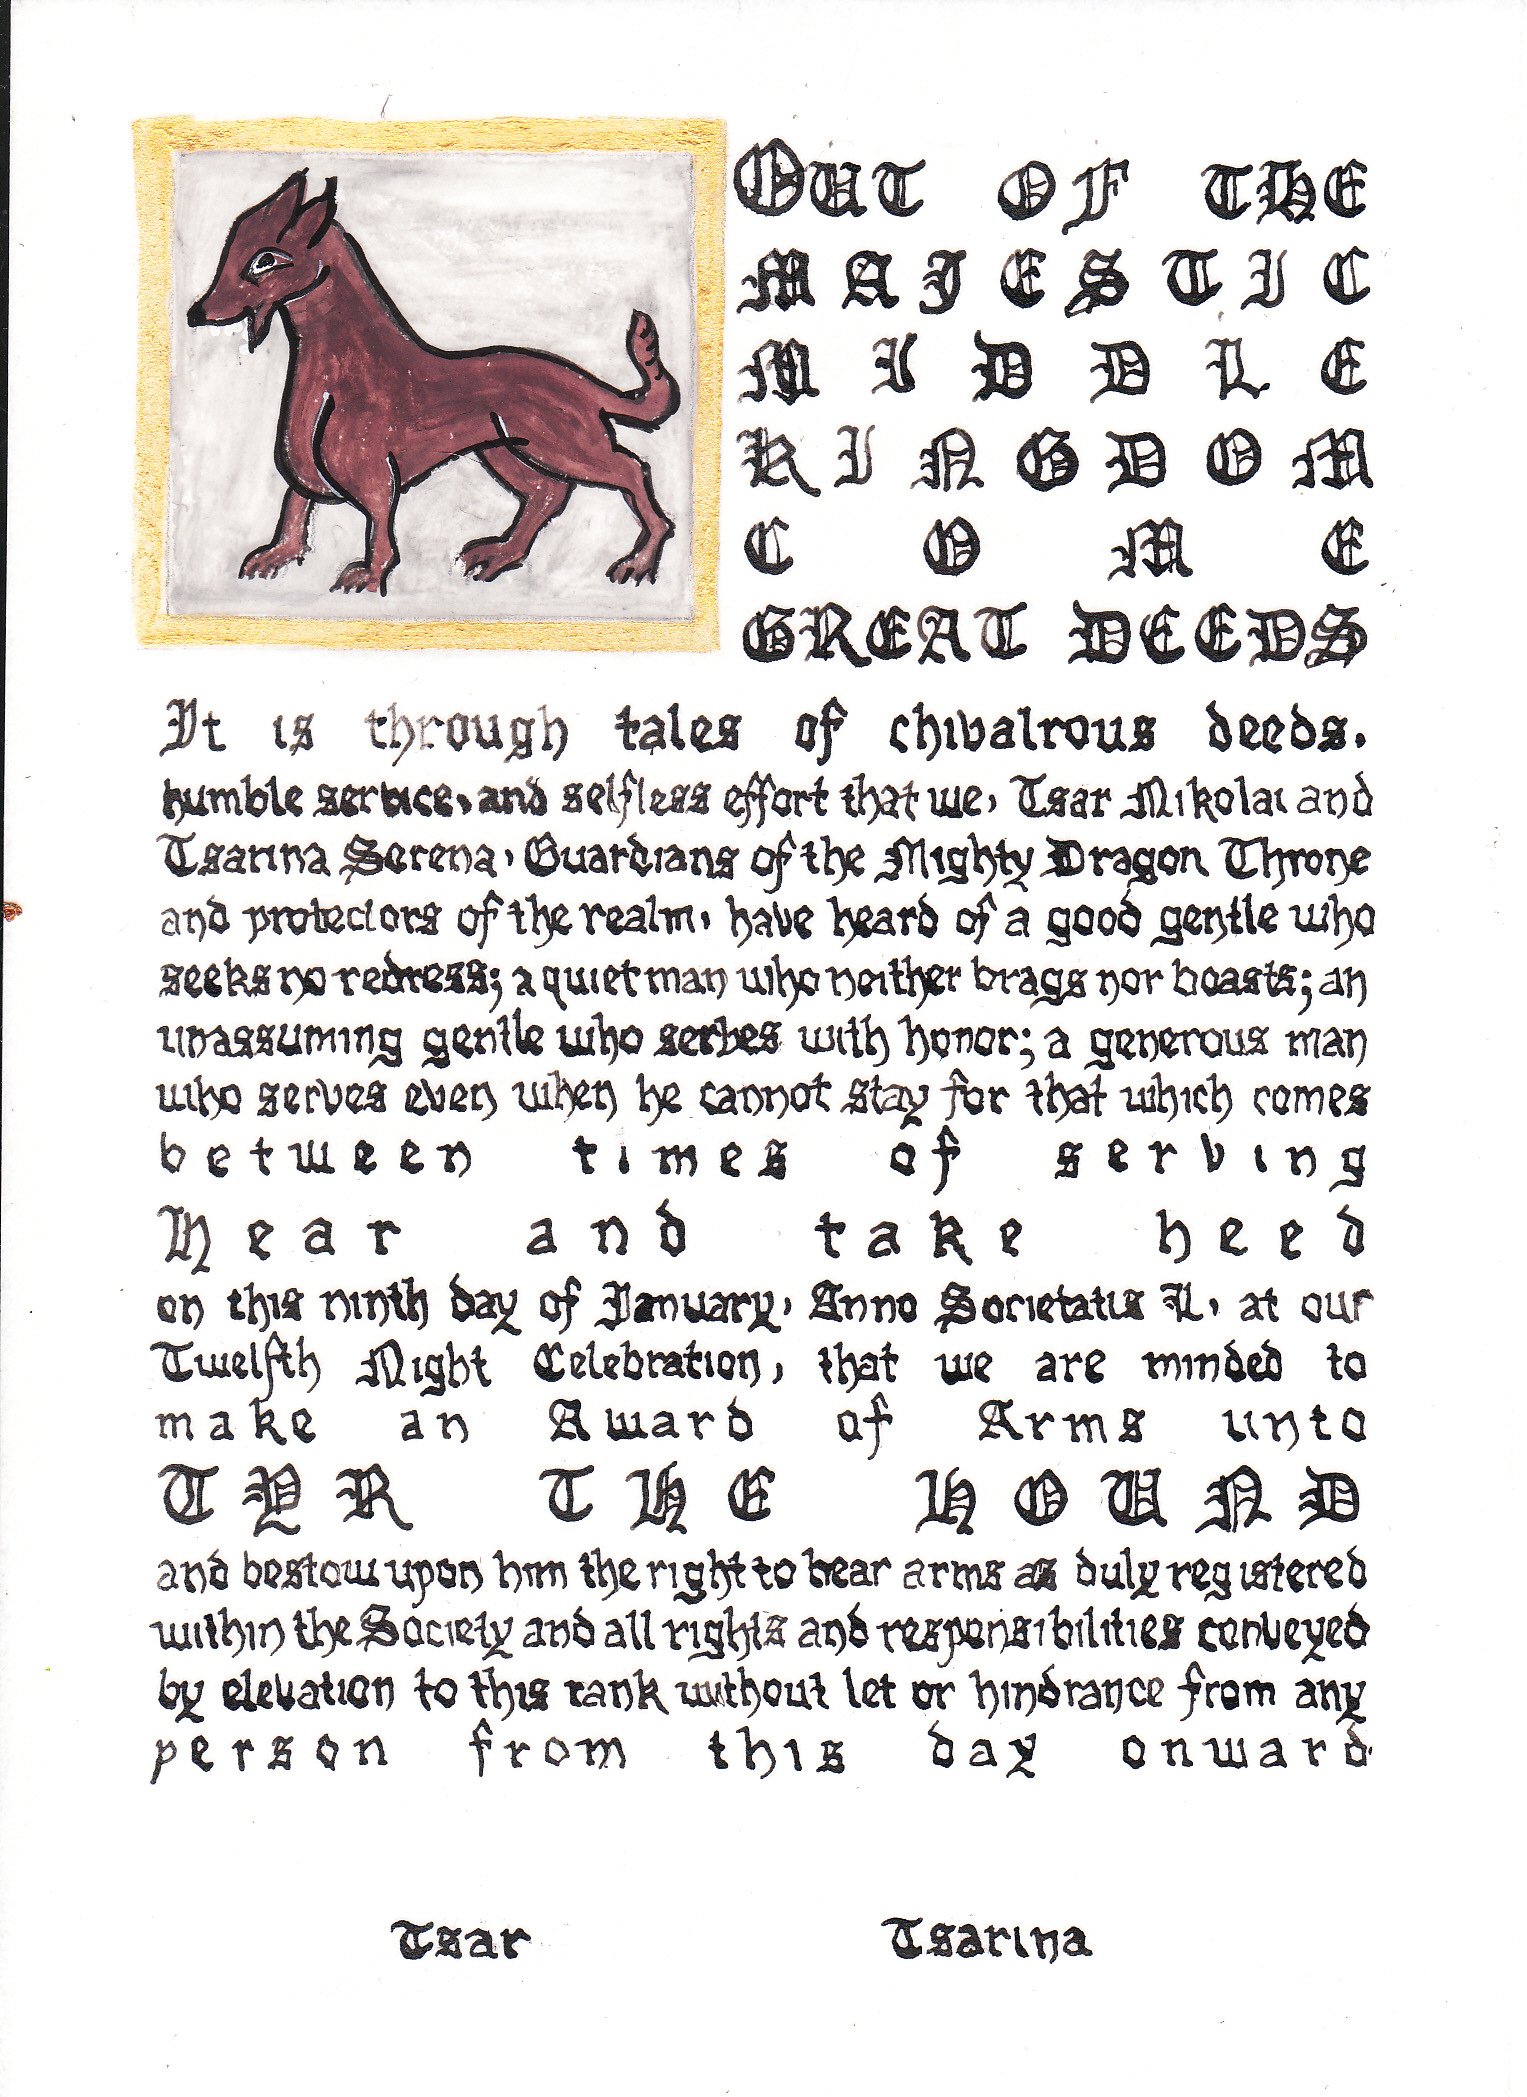 OUT OF THE
MAJESTIC
MIDDLE
KINGDOM
COME
GREAT DEEDS
It is through tales of chivalrous deeds,
humble service, and selfless effort that we, Tsar Nikolai and
Tsarina Serena, Guardians of the Mighty Dragon Throne
and protectors of the realm, have heard of a good gentle who
seeks no redress; a quiet man who neither brags nor boasts; an
unassuming gentle who serves with honor; a generous man
who serves even when he cannot stay for that which comes
between times of serving
Hear and take heed
on this ninth day of January, Anno Societatis L, at our
Twelfth Night Celebration, that we are minded to
make an Award of Arms unto
TYR THE HOUND
and bestow upon him the right to bear arms as duly registered
within the Society and all rights and responsibilities conveyed
by elevation to this rank without let or hindrance from any
person from this day onward.
Tsar Tsarina